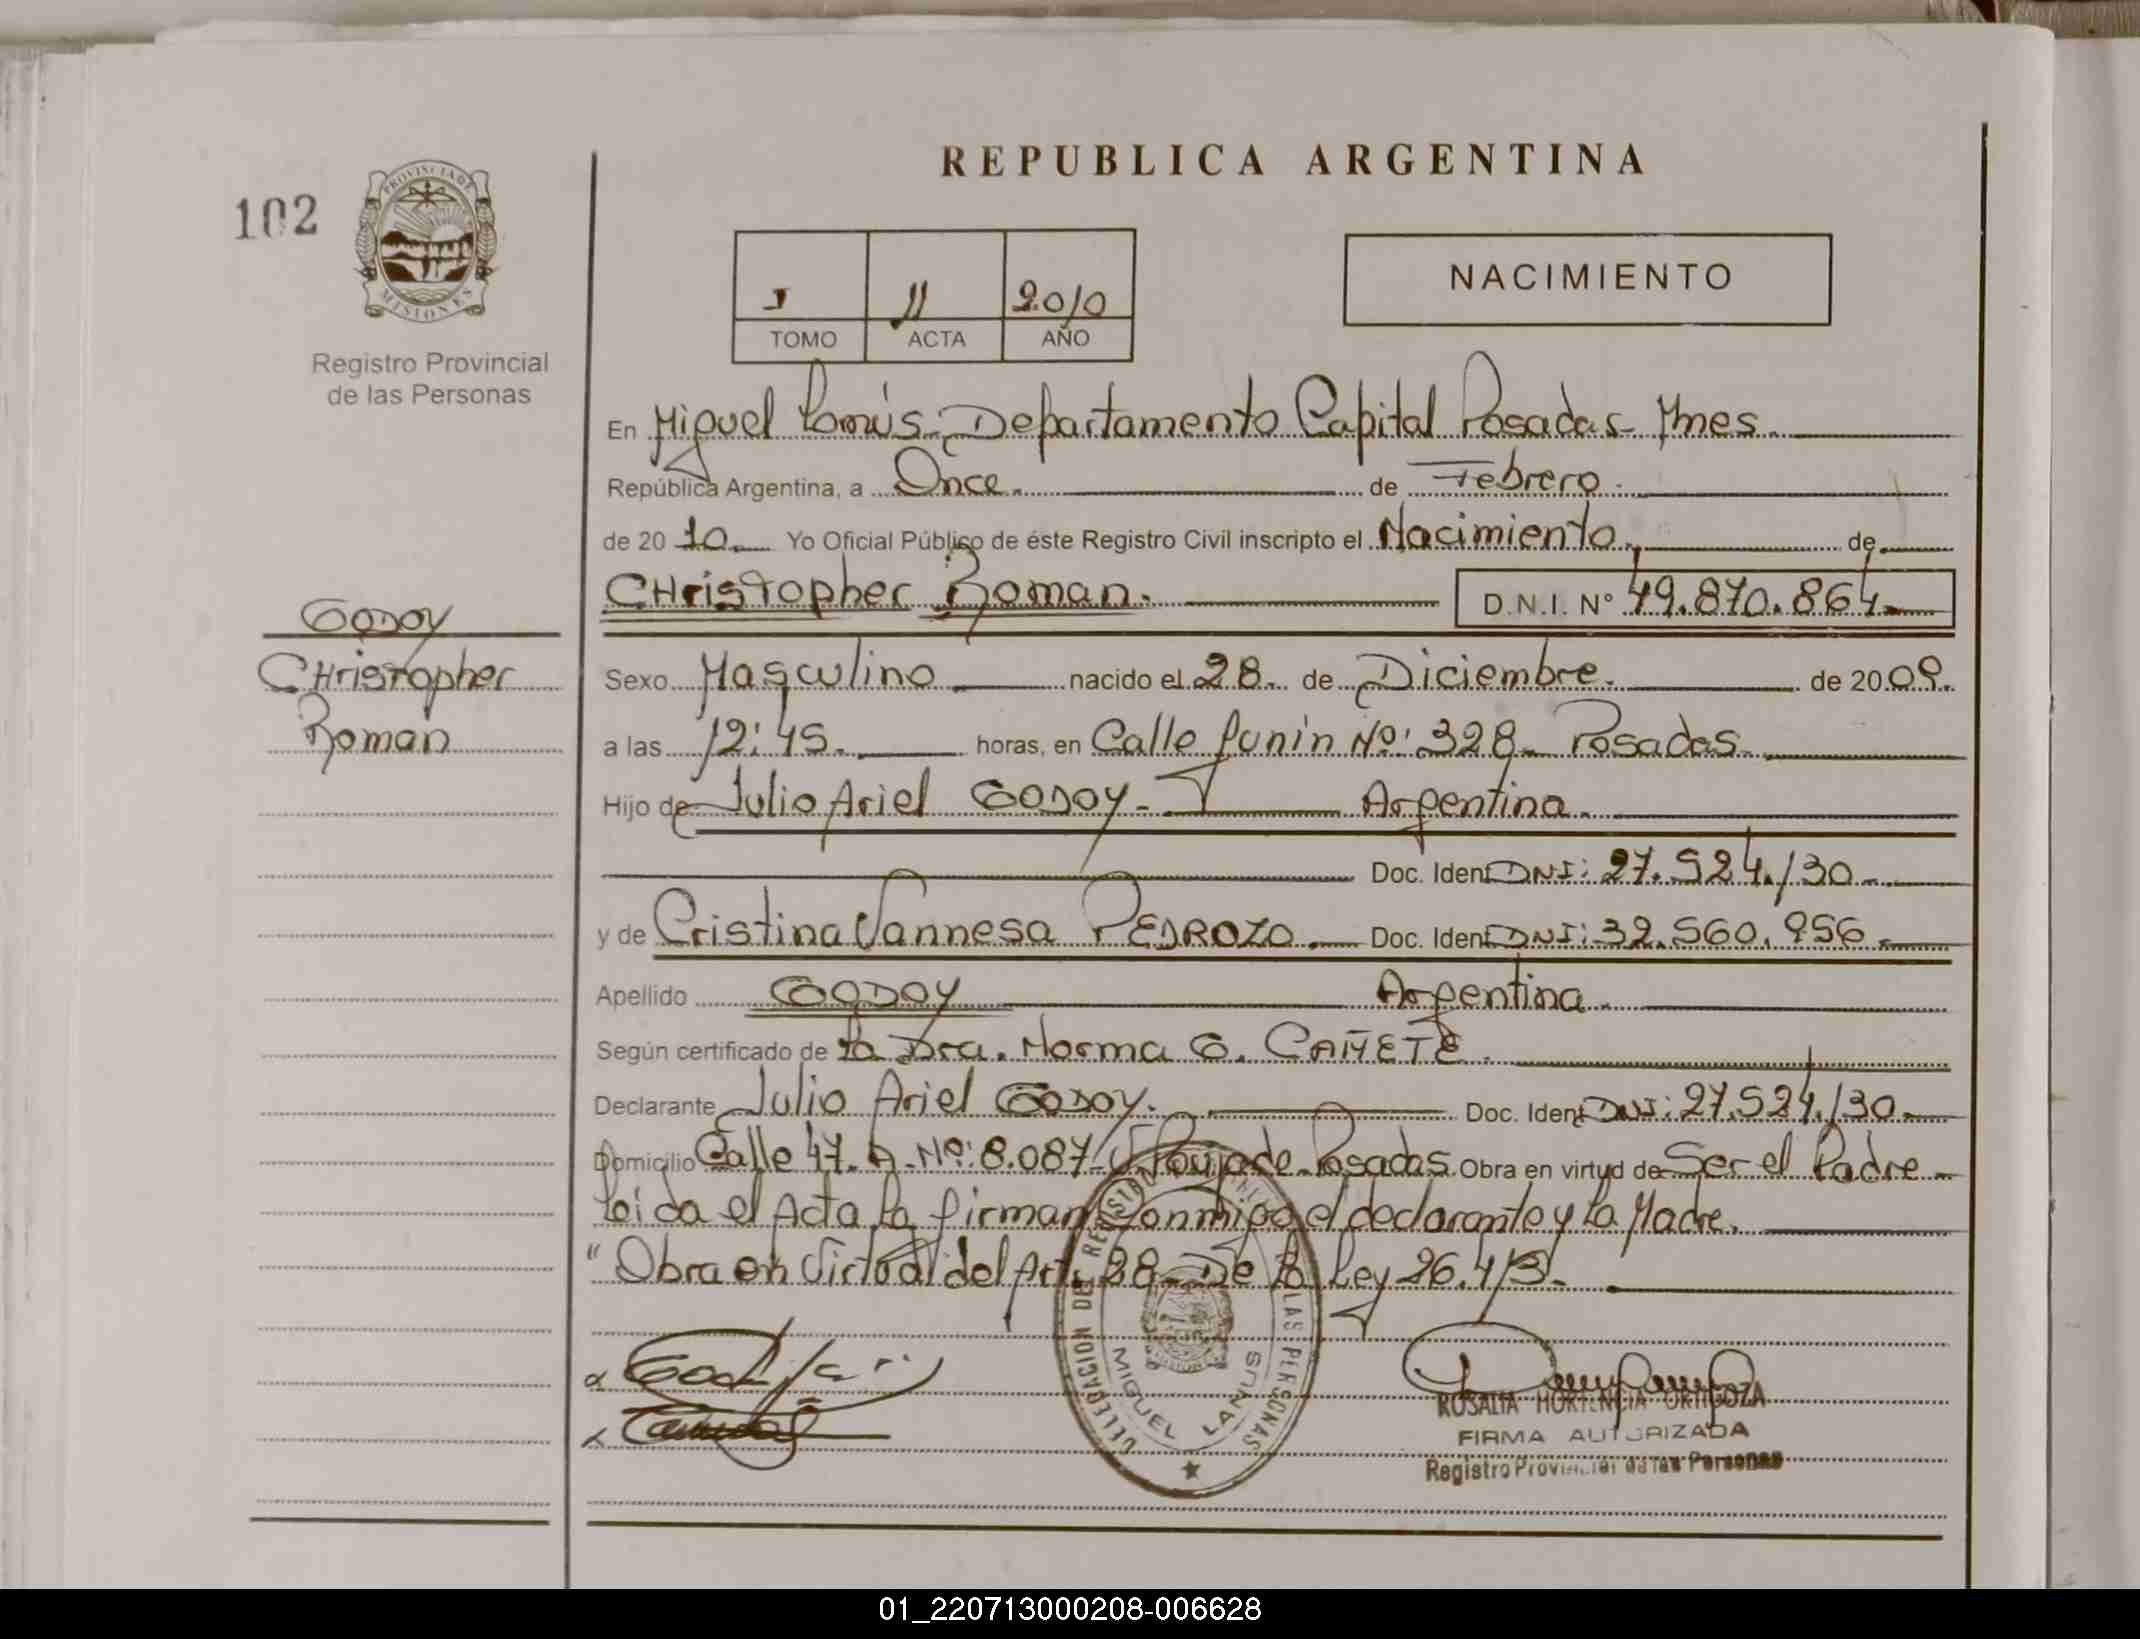 REPUBLICA ARGENTINA
102
PROVINCIA DE
MISIONES
Registro Provincial
de las Personas
I 11 2010
TOMO ACTA AÑO
NACIMIENTO
En Miguel Lanús. Departamento Capital Posadas- Mnes.
República Argentina, a Once. de Febrero.
de 20 10. Yo Oficial Público de éste Registro Civil inscripto el Nacimiento, de
CHristopher Roman. D.N.I. N° 49.870.864
Godoy
CHristopher
Roman
Sexo Masculino nacido el 28. de Diciembre. de 20 09.
a las 12:45. horas, en Calle Junín Nº: 328- Posadas.
Hijo de Julio Ariel GODOY- Argentina.
Doc. Ident DNI: 27.524.130
y de Cristina Vannesa PEDROZO. Doc. Ident DNI: 32.560.956
Apellido GODOY Argentina.
Según certificado de La Dra. Norma G. CAÑETE.
Declarante Julio Ariel GODOY. Doc. Ident DNI: 27.524.130
Domicilio Calle 47. A. Nº: 8.087 Posadas Obra en virtud de Ser el Padre
Leida el Acta La firman Conmigo el declarante y La Madre.
"Obra en Virtud del Art. 28- De La Ley 26.413.
DELEGACION DEL REGISTRO LAS PERSONAS
MIGUEL LANUS
ROSALIA HORTENCIA ORTIGOZA
FIRMA AUTORIZADA
Registro Provincial de las Personas
01_220713000208-006628